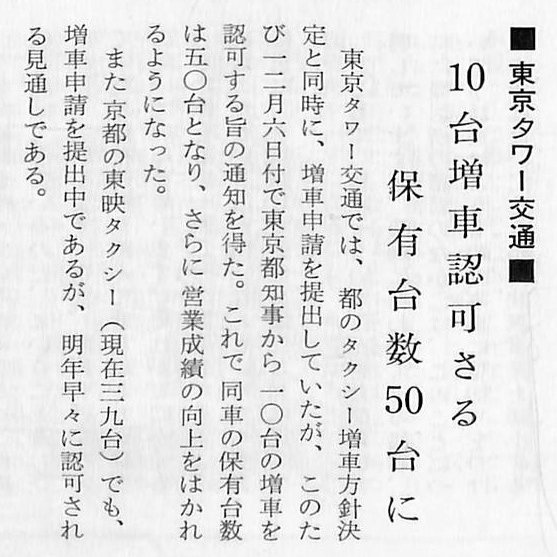 ■東京タワー交通■
10台増車認可さる
保有台数50台に
東京タワー交通では、都のタクシー増車方針決
定と同時に、増車申請を提出していたが、このた
び一二月六日付で東京都知事から一〇台の増車を
認可する旨の通知を得た。これで同車の保有台数
は五〇台となり、さらに営業成績の向上をはかれ
るようになった。
また京都の東映タクシー（現在三九台）でも、
増車申請を提出中であるが、明年早々に認可され
る見通しである。